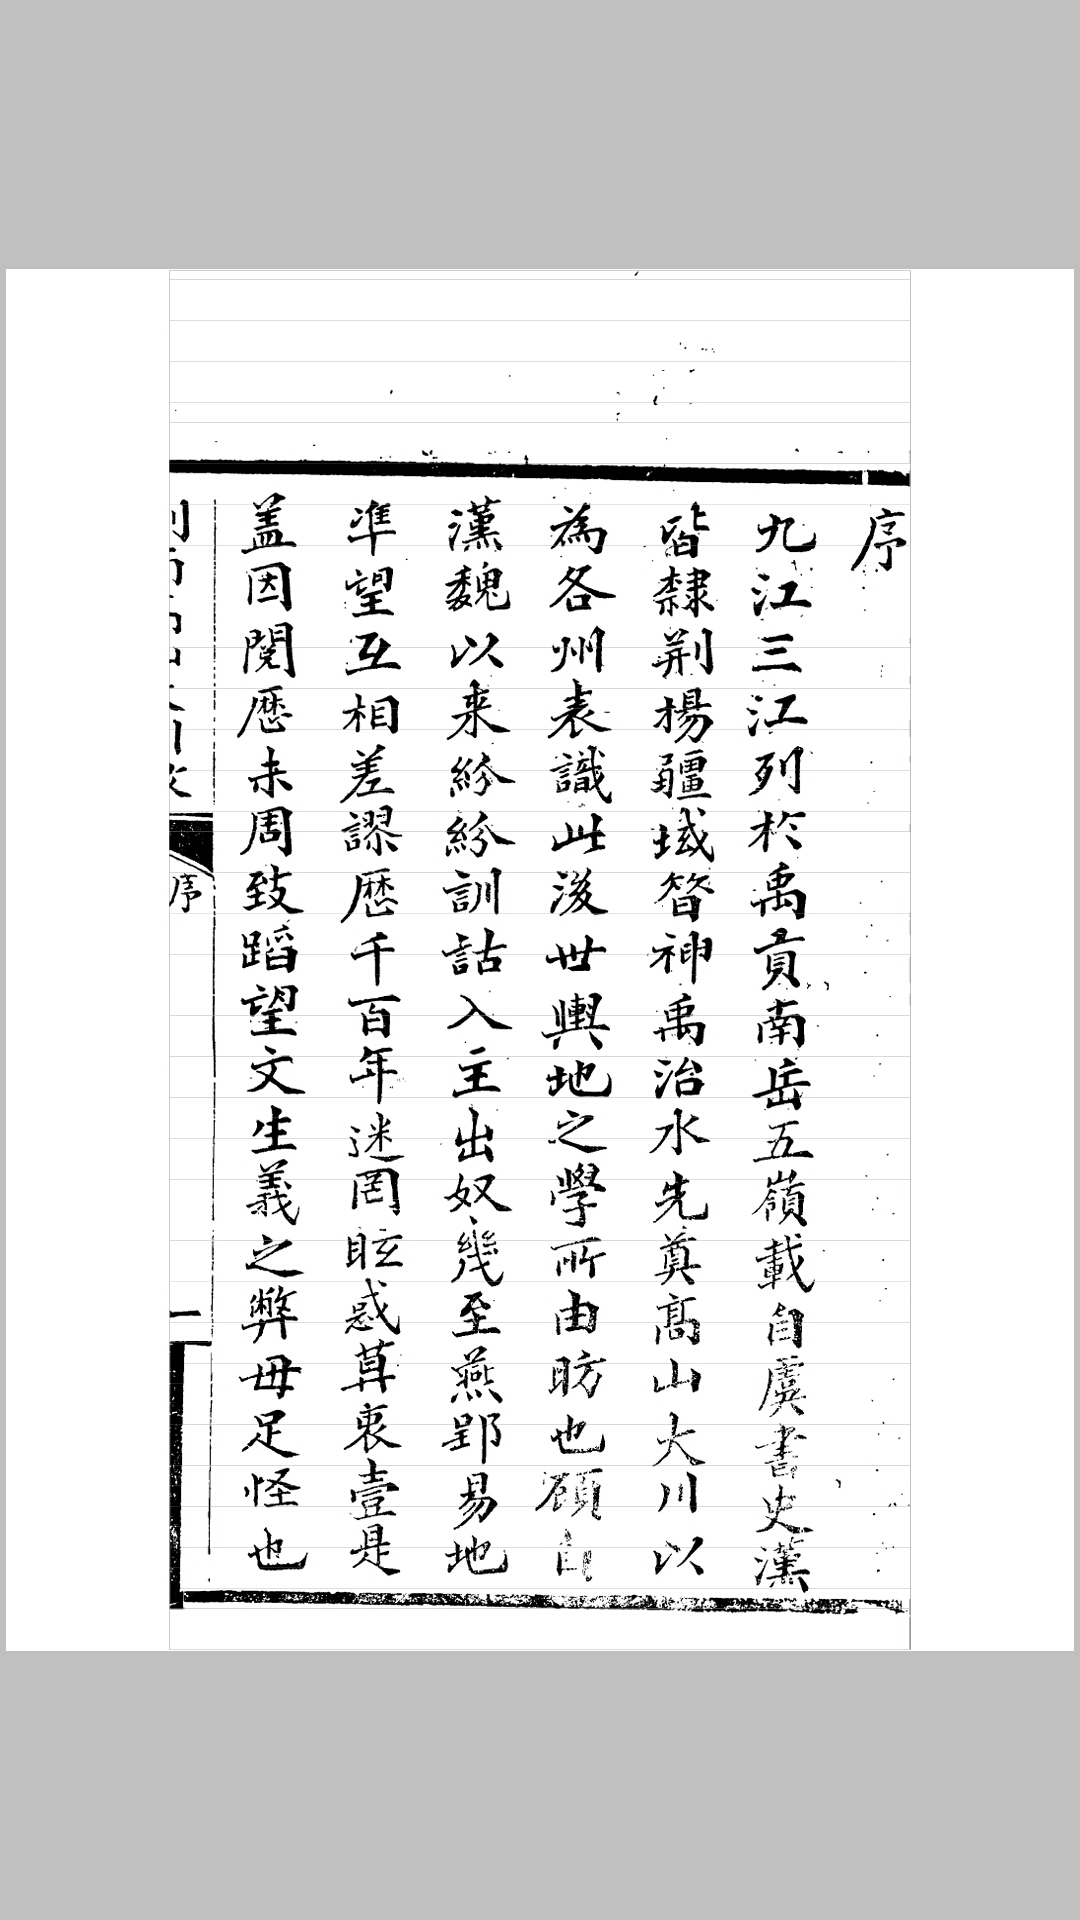 序
九江三江列於禹貢南岳五嶺載自虞書史漢
皆隸荆楊疆域昔神禹治水先奠髙山大川以
為各州表識此後世輿地之學所由昉也顧自
漢魏以来紛紛訓詁入主出奴幾至燕郢易地
準望互相差謬歴千百年迷罔眩惑算衷壹是
盖因閱歴未周致蹈望文生義之弊毋足怪也
序
一